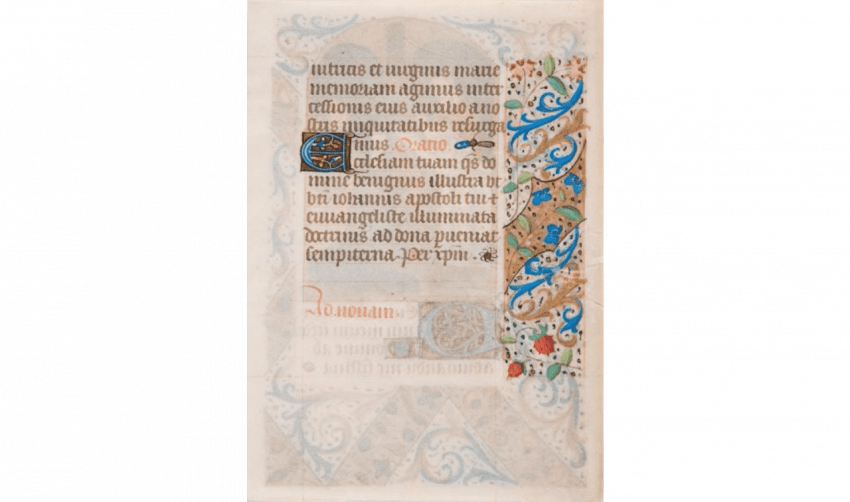 nitricis et uirginis marie
memoriam agimus inter
cessionis eius auxilio a no
stris iniquitatibus resurga
mus. Oratio
Ecclesiam tuam qs do
mine benignus illustra vt
bti iohannis apostoli tui et
euuangeliste illuminata
doctrinis ad dona pueniat
sempiterna. Per xpm.
Ad nonam